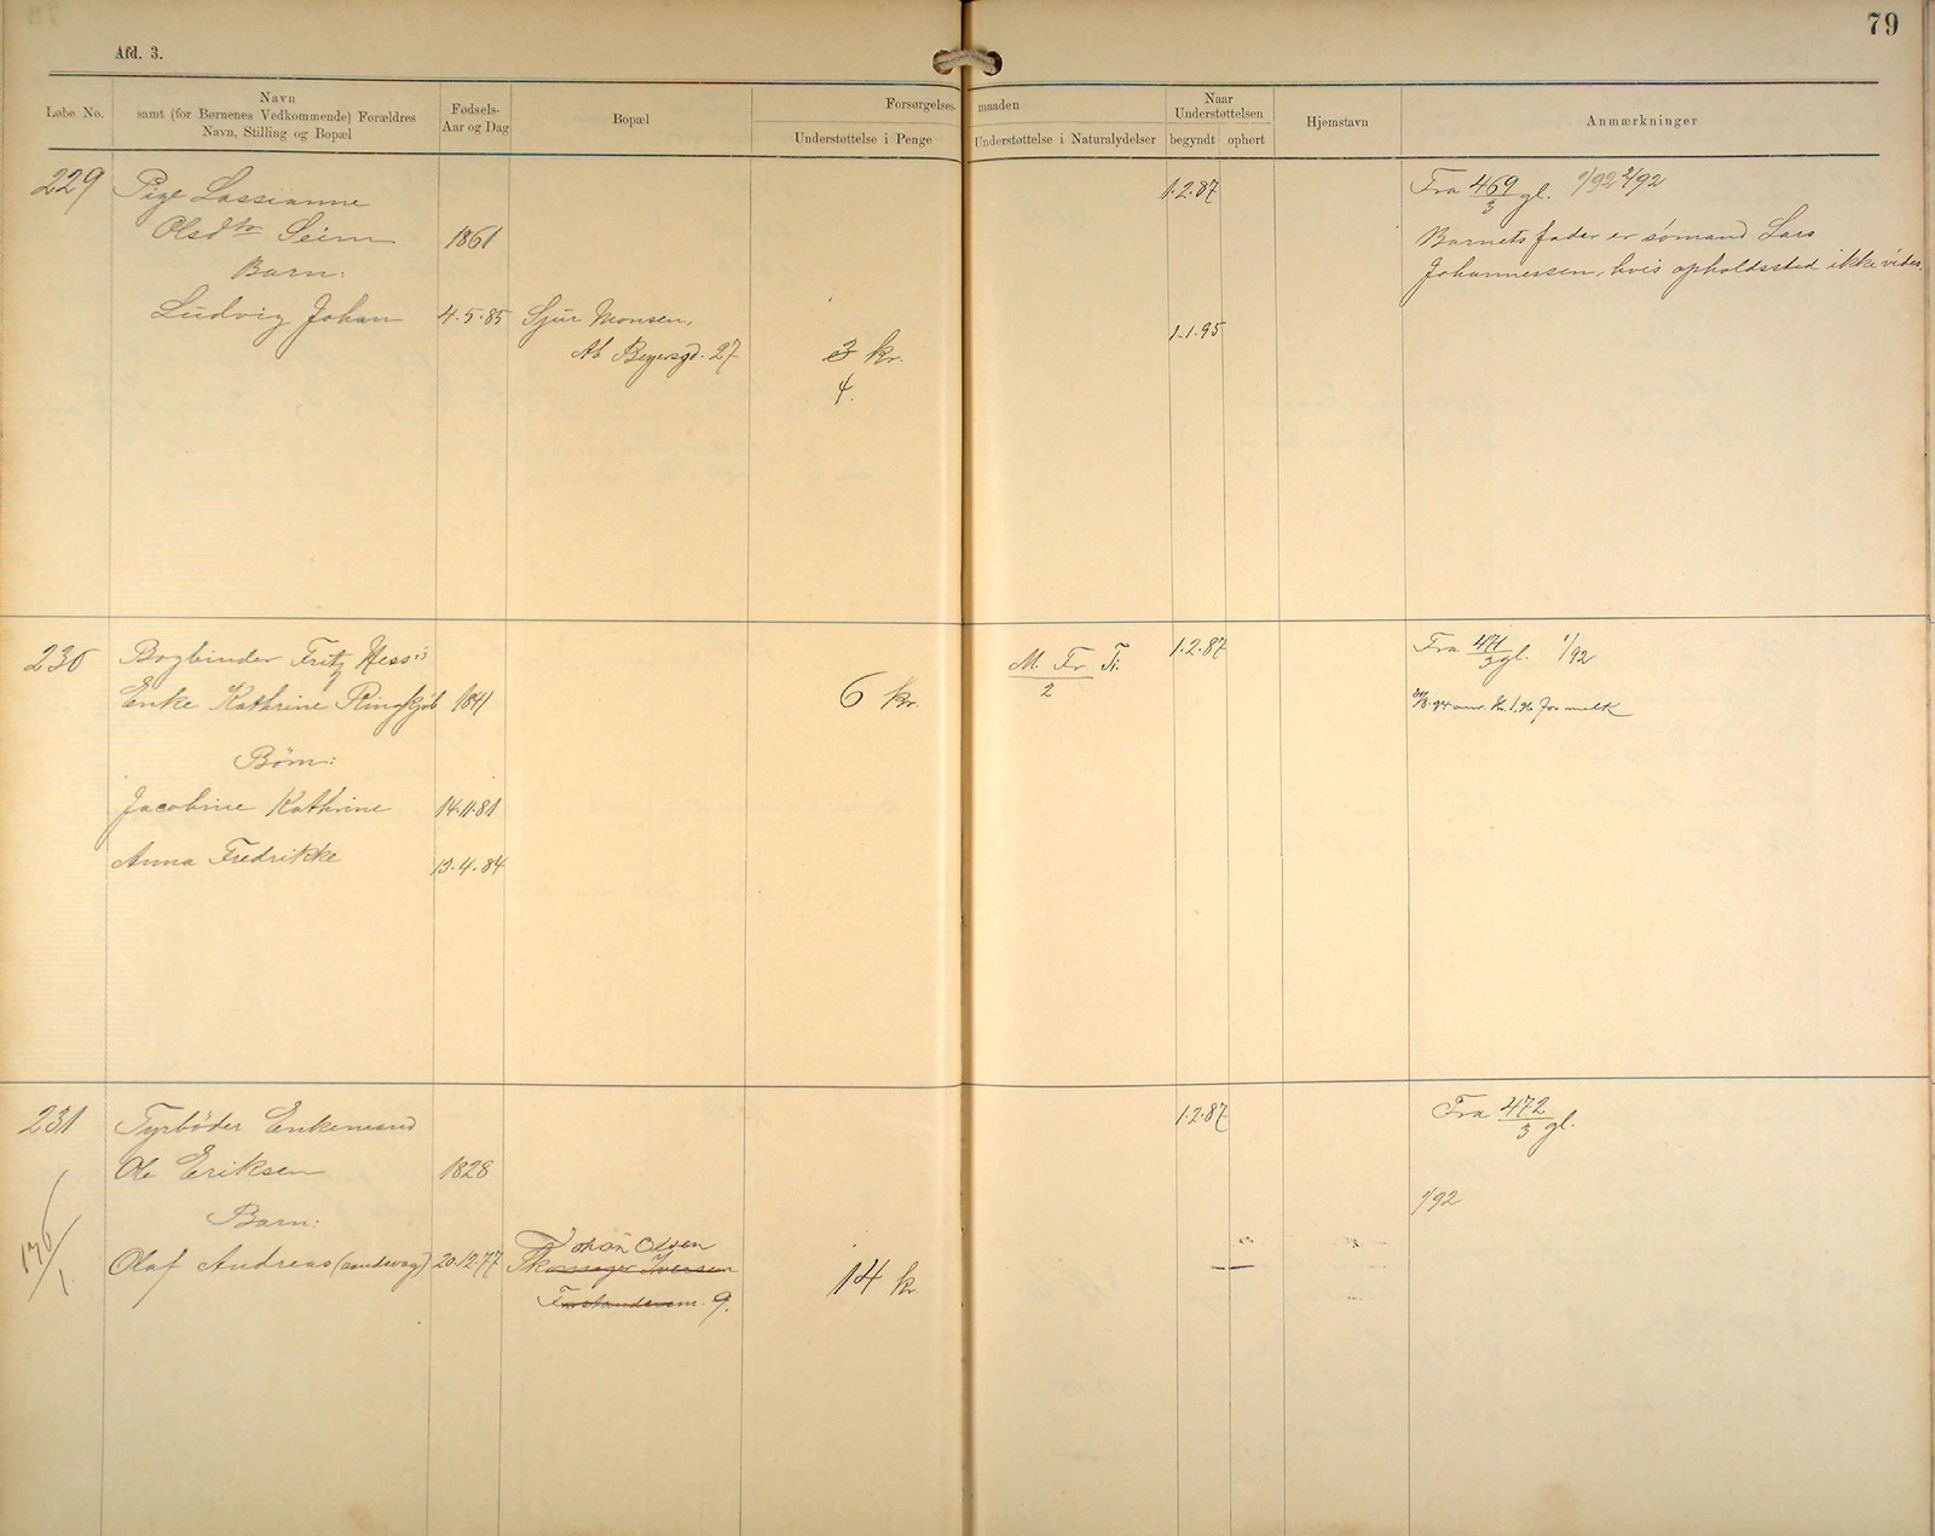 79
Afd. 3.
Løbe No.
Navn
samt (for Børnenes Vedkommende) Forældres
Navn, Stilling og Bopæl
Fødsels-
Aar og Dag
Bopæl
Forsørgelses-
maaden
Understøttelse i Penge
Understøttelse i Naturalydelser
Naar
Understøttelsen
begyndt
ophørt
Hjemstavn
Anmærkninger
229 Pige Lassianne 1.2.87 Fra 469/3 gl. 1/92 2/92
Olsdtr Seim 1861 Barnets fader er sömand Lars
Barn: Johannessen, hvis opholdssted ikke vides.
Ludvig Johan 4.5.85 Sjur Monsen, 1.1.95
Ab Beyersgd. 27 3 kr.
4.
230 Bogbinder Fritz Hess's M. Fr. Ti. 1.2.87 Fra 471/3 gl. 1/92
2
Enke Kathrine Ringkjöb 1841 6 kr. 94 anv. Kr. 1.96 for melk
Börn:
Jacobine Kathrine 14.11.81
Anna Fredrikke 13.4.84
231 Fyrböder Enkemand 1.2.87 Fra 472/3 gl.
Ole Eriksen 1828 1/92
Barn:
Johan Olsen
Olaf Andreas (aandsvag) 20.12.77 Skomager Iversen 14 kr.
Forstandersm. 9.